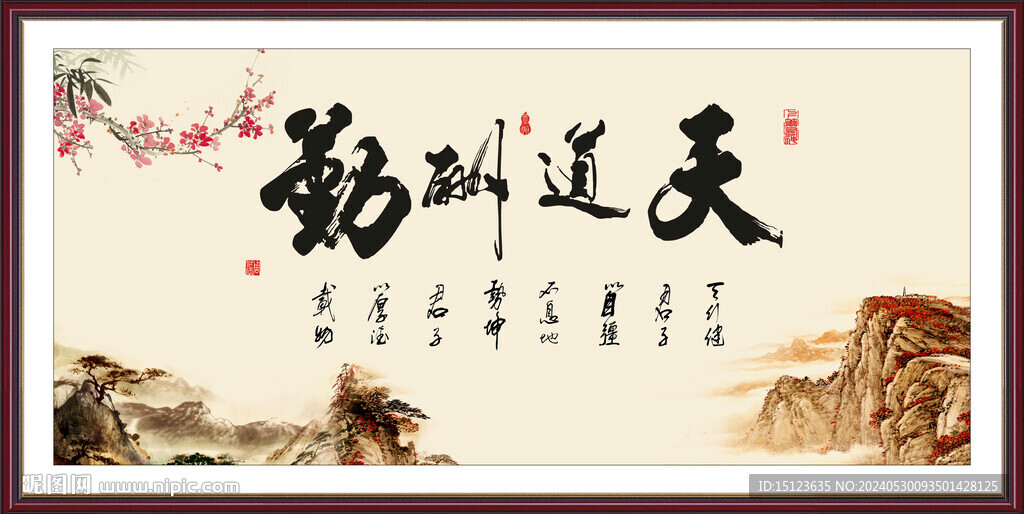 天道酬勤
天行健
君子
以自彊
不息地
勢坤
君子
以厚德
載物
昵图网 www.nipic.com
ID:15123635 NO:20240530093501428125